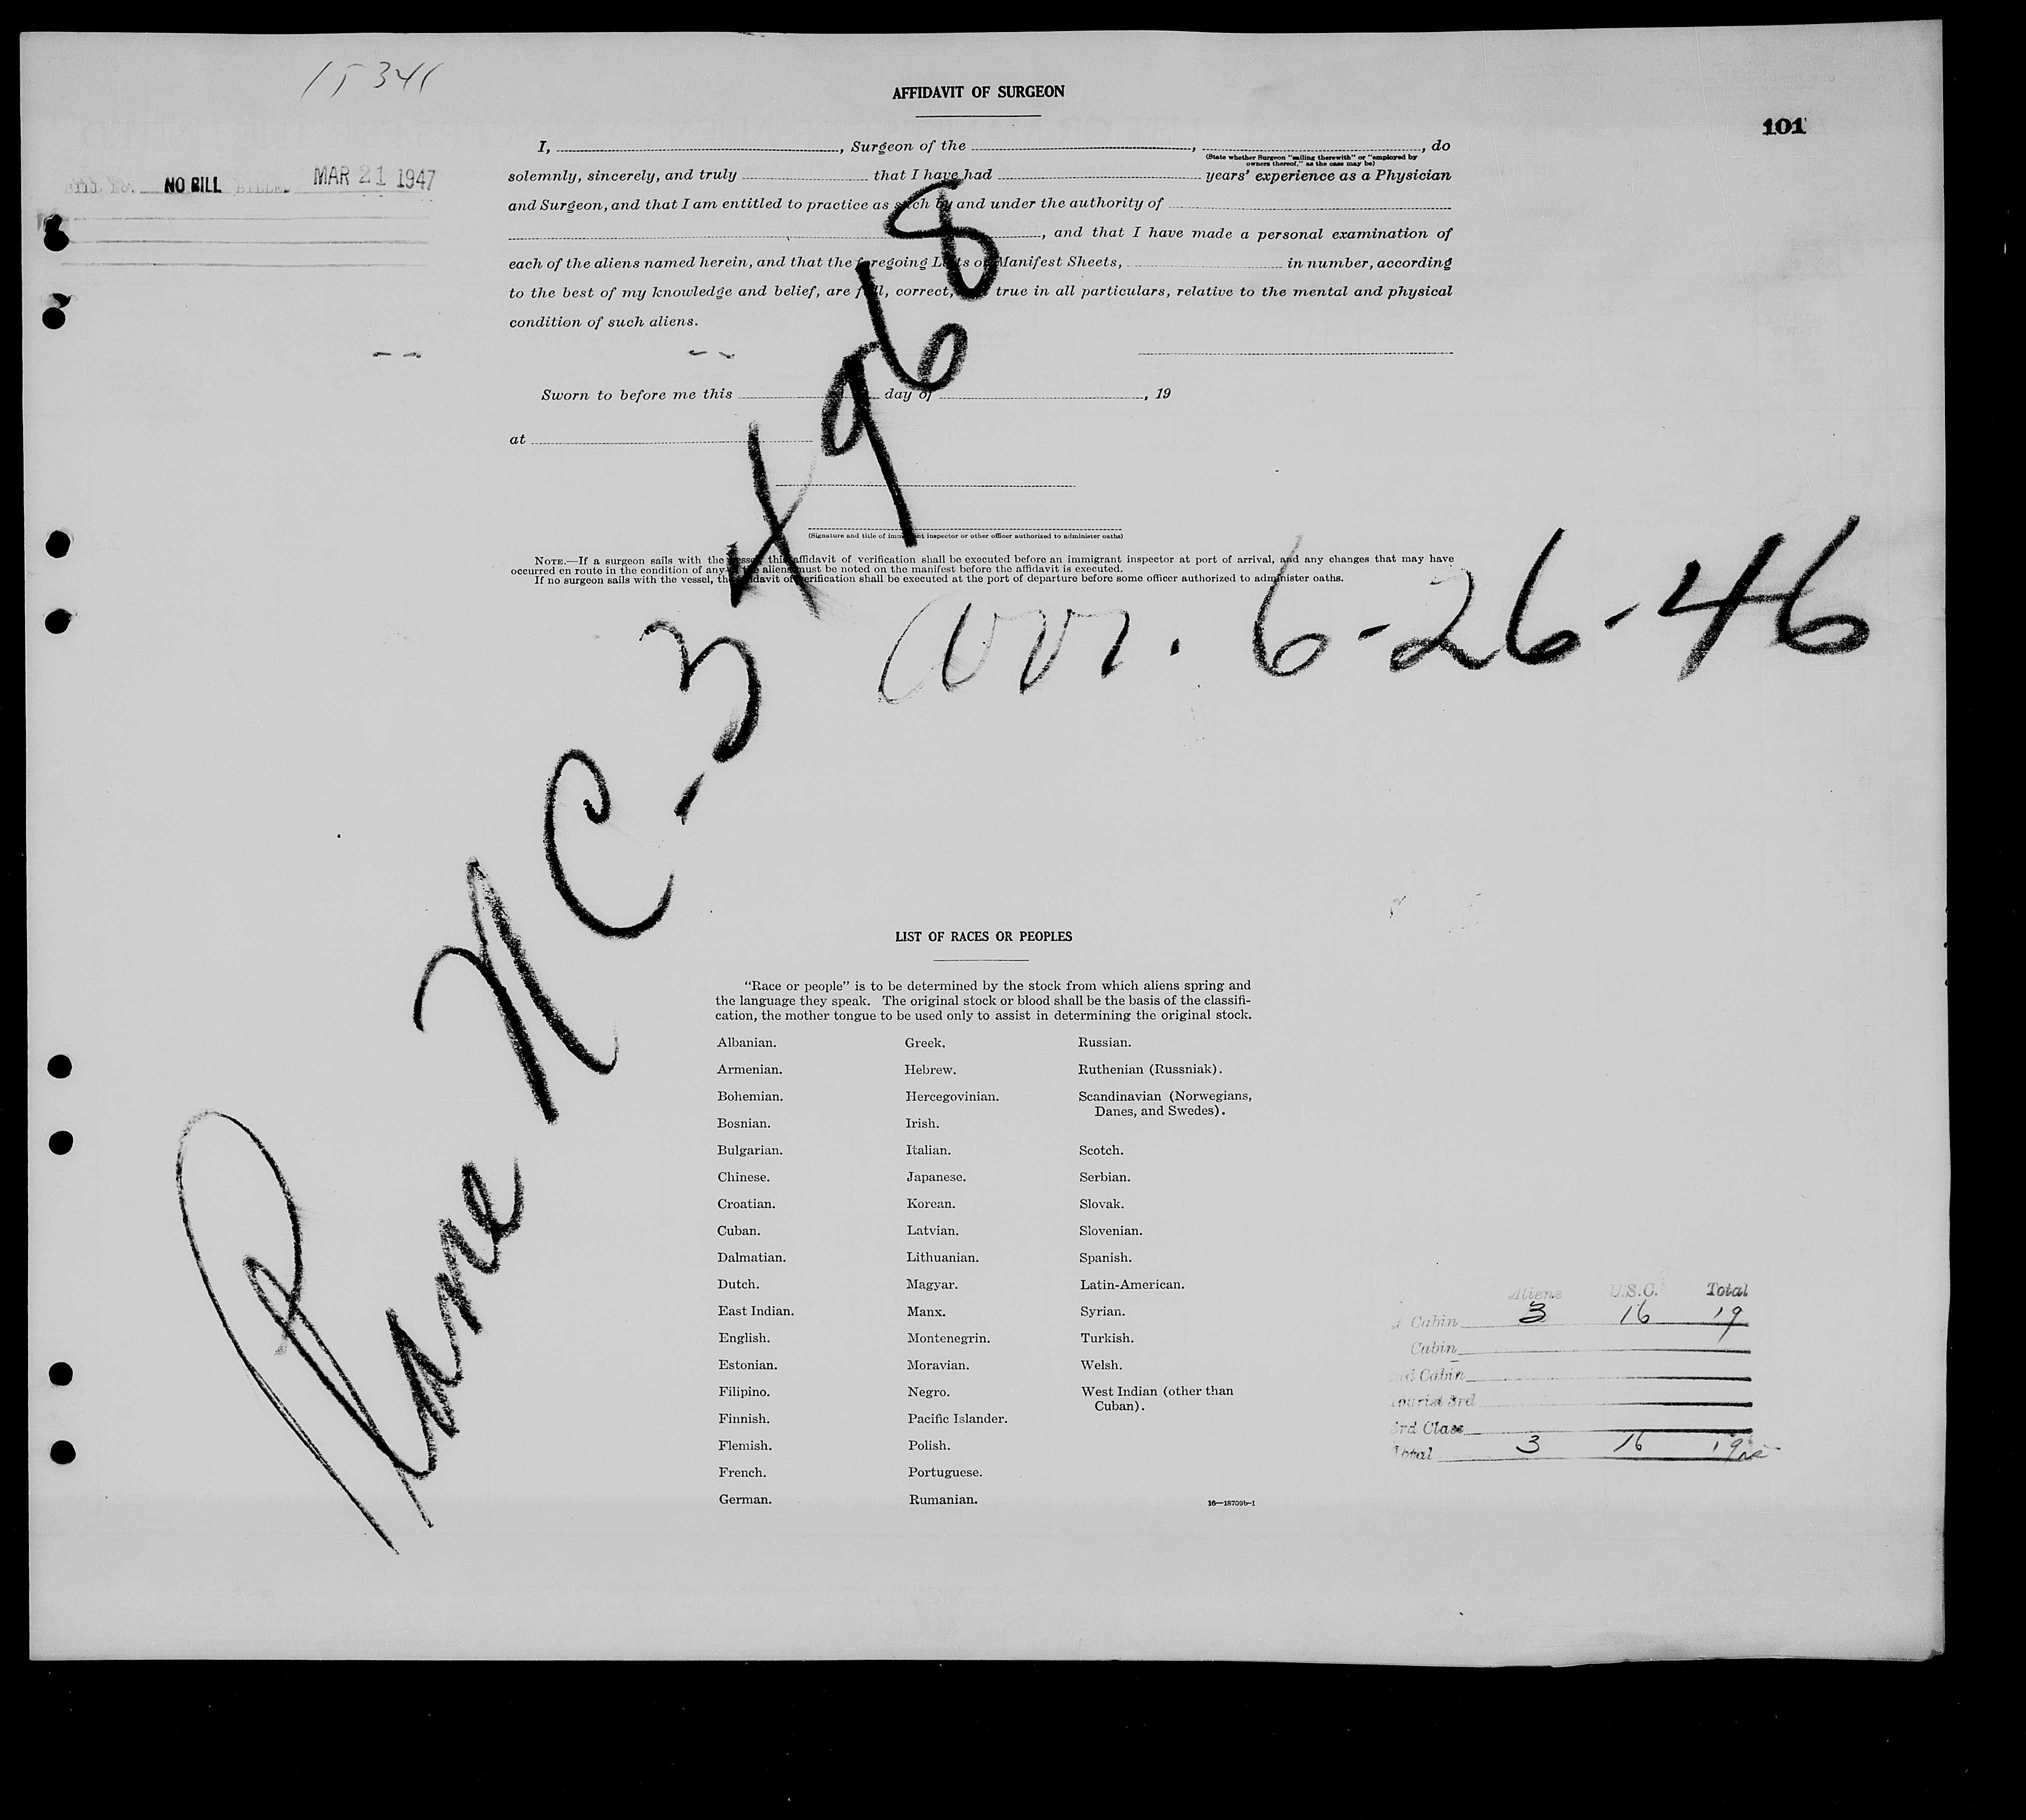 15341
AFFIDAVIT OF SURGEON
101
I, , Surgeon of the , , do
(State whether Surgeon "sailing therewith" or "employed by
owners thereof," as the case may be)
NO BILL MAR 21 1947
solemnly, sincerely, and truly that I have had years' experience as a Physician
and Surgeon, and that I am entitled to practice as such by and under the authority of
, and that I have made a personal examination of
each of the aliens named herein, and that the foregoing Lists or Manifest Sheets, in number, according
to the best of my knowledge and belief, are full, correct, and true in all particulars, relative to the mental and physical
condition of such aliens.
Sworn to before me this day of , 19
at
(Signature and title of immigrant inspector or other officer authorized to administer oaths)
NOTE.—If a surgeon sails with the vessel, this affidavit of verification shall be executed before an immigrant inspector at port of arrival, and any changes that may have
occurred en route in the condition of any of the aliens must be noted on the manifest before the affidavit is executed.
If no surgeon sails with the vessel, the affidavit of verification shall be executed at the port of departure before some officer authorized to administer oaths.
Plane NC-34968
arr. 6-26-46
LIST OF RACES OR PEOPLES
"Race or people" is to be determined by the stock from which aliens spring and
the language they speak. The original stock or blood shall be the basis of the classifi-
cation, the mother tongue to be used only to assist in determining the original stock.
Albanian.
Armenian.
Bohemian.
Bosnian.
Bulgarian.
Chinese.
Croatian.
Cuban.
Dalmatian.
Dutch.
East Indian.
English.
Estonian.
Filipino.
Finnish.
Flemish.
French.
German.
Greek.
Hebrew.
Hercegovinian.
Irish.
Italian.
Japanese.
Korean.
Latvian.
Lithuanian.
Magyar.
Manx.
Montenegrin.
Moravian.
Negro.
Pacific Islander.
Polish.
Portuguese.
Rumanian.
Russian.
Ruthenian (Russniak).
Scandinavian (Norwegians,
Danes, and Swedes).
Scotch.
Serbian.
Slovak.
Slovenian.
Spanish.
Latin-American.
Syrian.
Turkish.
Welsh.
West Indian (other than
Cuban).
16—18709b-1
Aliens U.S.C. Total
Cabin 3 16 19
Cabin
Cabin
Tourist 3rd
3rd Class
Total 3 16 19